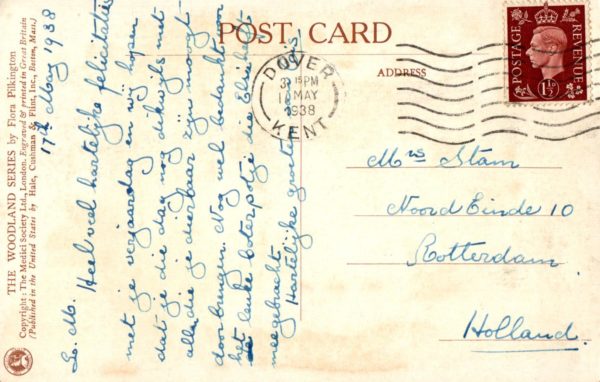 POST CARD
ADDRESS
THE WOODLAND SERIES by Flora Pilkington
Copyright: The Medici Society Ltd., London. Engraved & printed in Great Britain
(Published in the United States by Hale, Cushman & Flint, Inc., Boston, Mass.)
17th May 1938
Lo. M. Heel veel hartelijke felicitaties
met je verjaardag en wij hopen
dat je die dag nog dikwijls met
allen die je dierbaar zijn moogt
doorbrengen. Nog wel bedankt voor
het leuke boterpotje die Elisabeth
meegebracht
Hartelijke groeten
DOVER
KENT
3 15 PM
MAY
1938
POSTAGE
REVENUE
1½D
Mrs Stam
Noord Einde 10
Rotterdam
Holland.